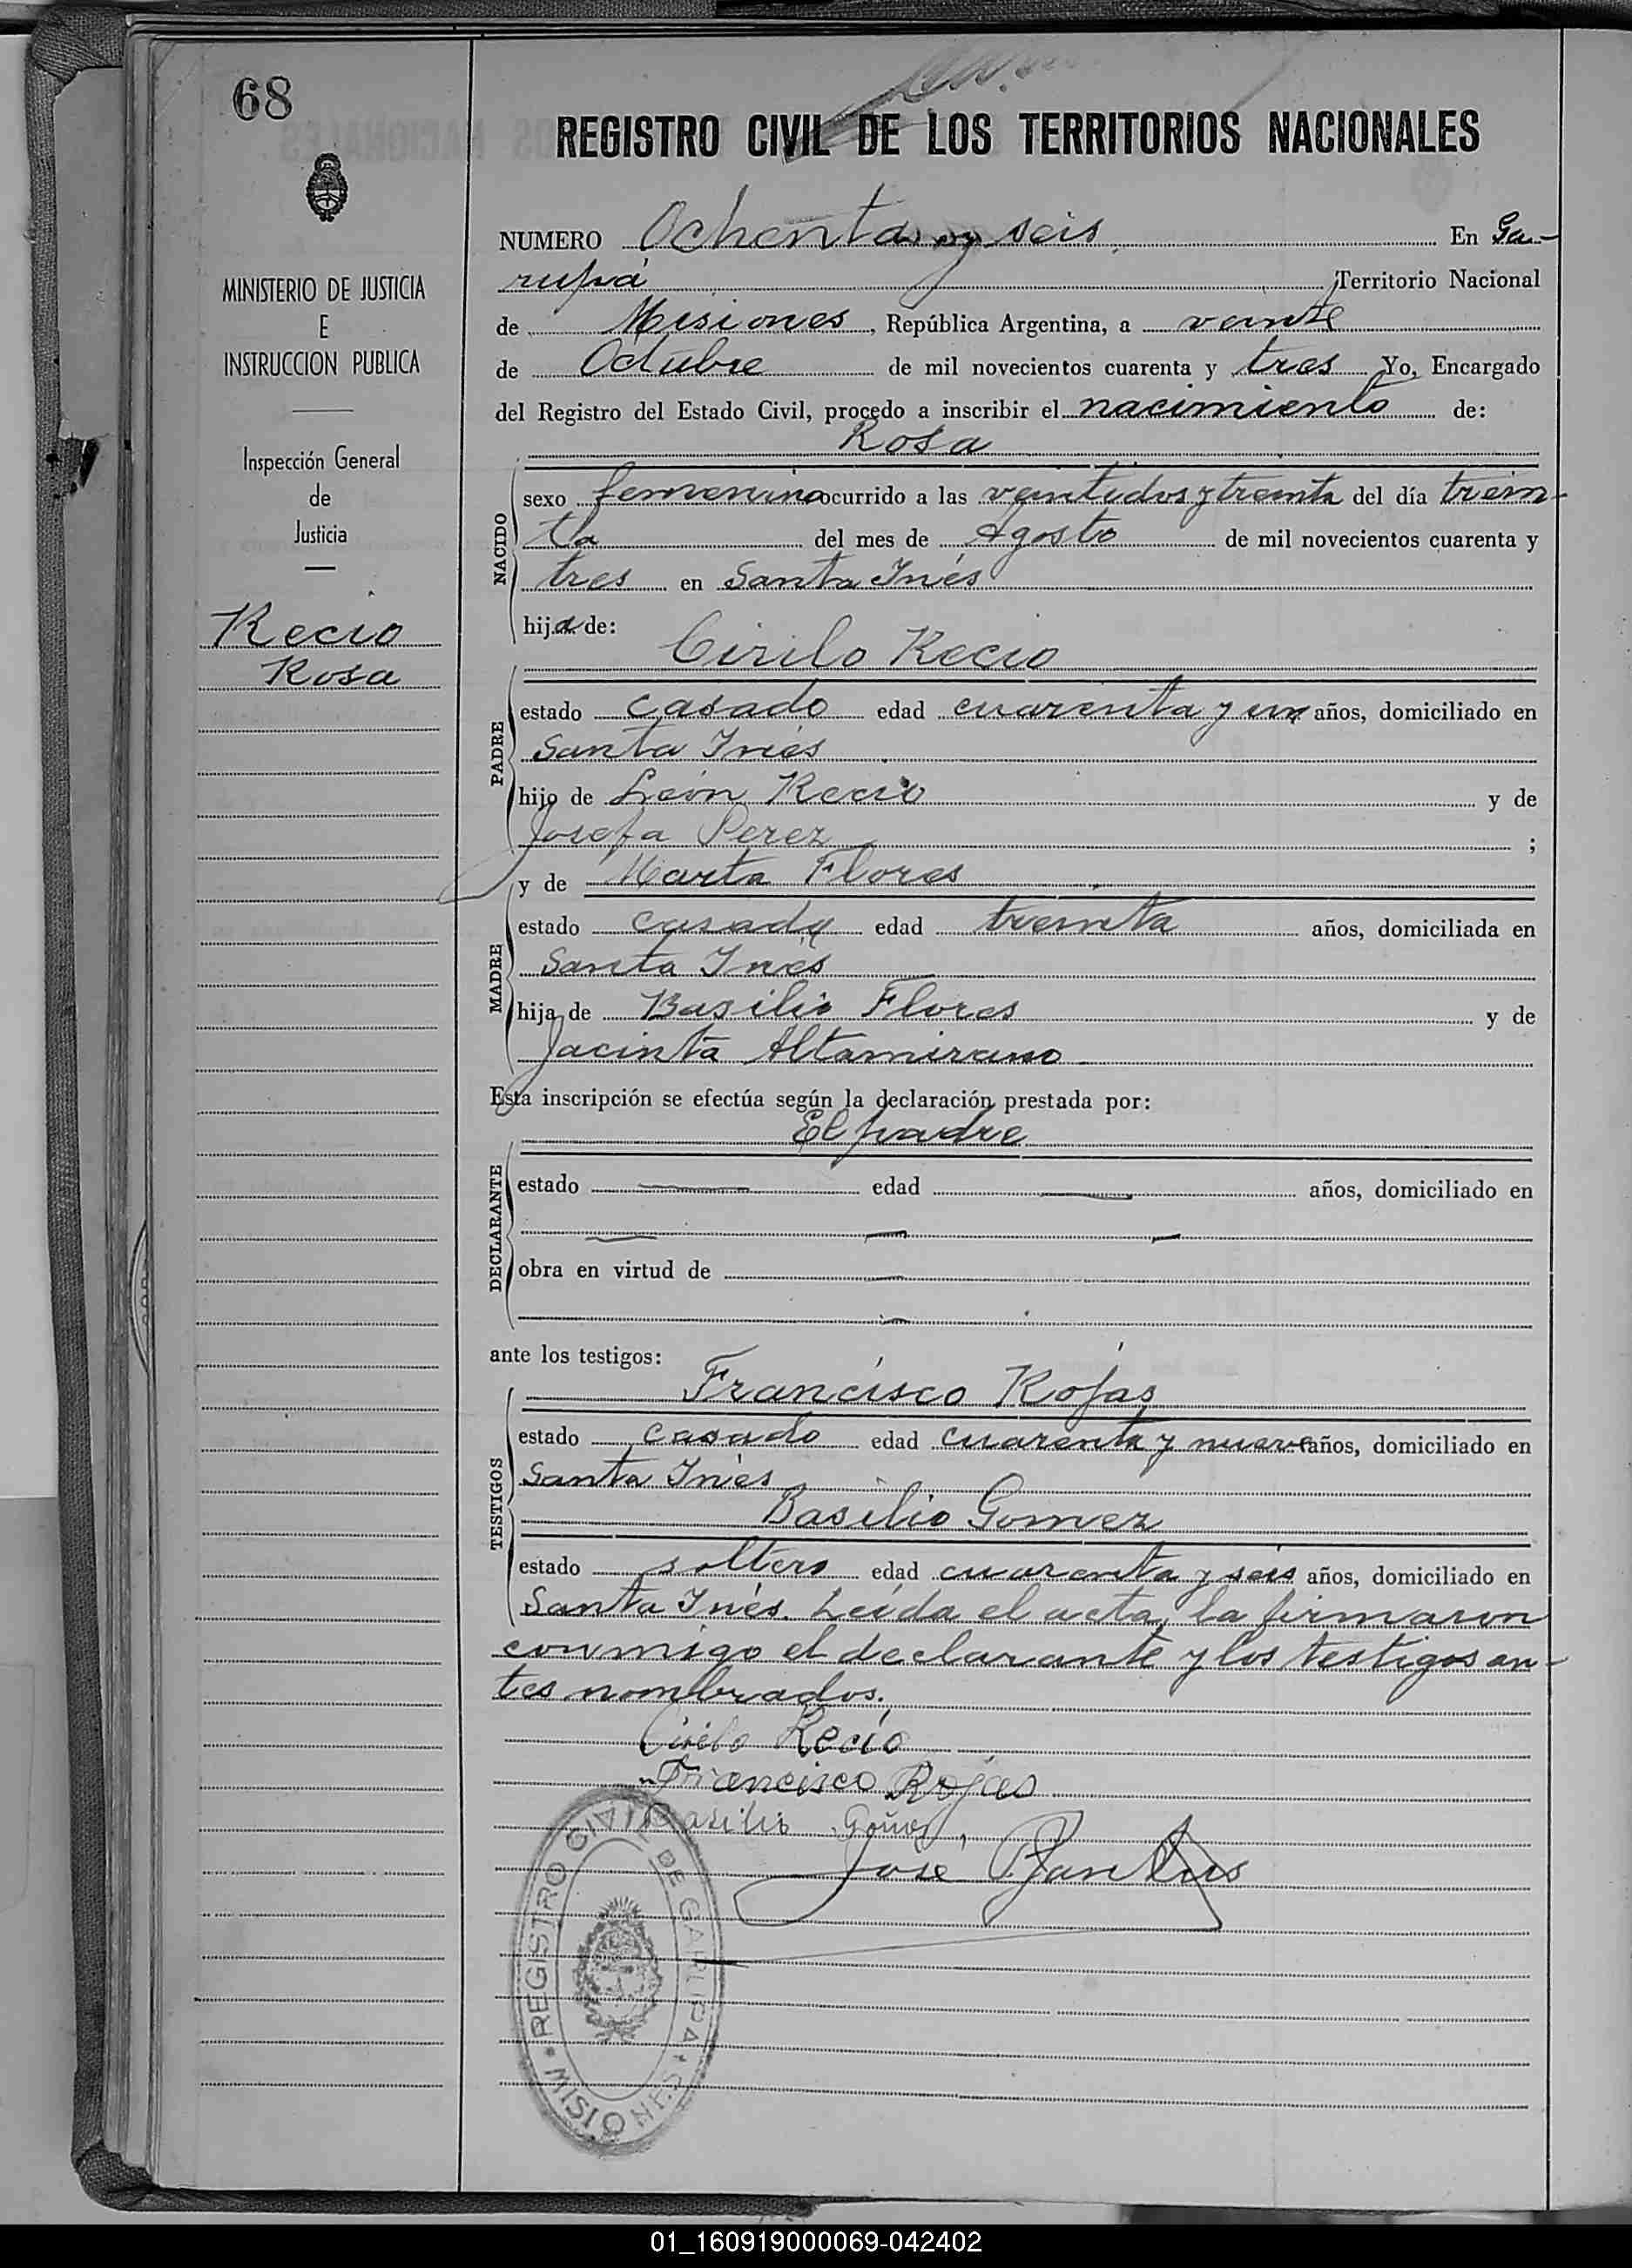 68
REGISTRO CIVIL DE LOS TERRITORIOS NACIONALES
MINISTERIO DE JUSTICIA
E
INSTRUCCION PUBLICA
Inspección General
de
Justicia
Recio
Rosa
NUMERO Ochenta y seis En Ga-
rupá Territorio Nacional
de Misiones, República Argentina, a veinte
de Octubre de mil novecientos cuarenta y tres Yo, Encargado
del Registro del Estado Civil, procedo a inscribir el nacimiento de:
Rosa
NACIDO
sexo femenino ocurrido a las veintidos y treinta del día trein-
ta del mes de Agosto de mil novecientos cuarenta y
tres en Santa Inés
hija de:
Cirilo Recio
PADRE
estado casado edad cuarenta y un años, domiciliado en
Santa Inés
hijo de León Recio y de
Josefa Perez ;
y de Marta Flores
MADRE
estado casada edad treinta años, domiciliada en
Santa Inés
hija de Basilio Flores y de
Jacinta Altamirano
Esta inscripción se efectúa según la declaración prestada por:
El padre
DECLARANTE
estado edad años, domiciliado en
obra en virtud de
ante los testigos:
Francisco Rojas
TESTIGOS
estado casado edad cuarenta y nueve años, domiciliado en
Santa Inés
Basilio Gomez
estado soltero edad cuarenta y seis años, domiciliado en
Santa Inés. Leída el acta, la firmaron
conmigo el declarante y los testigos an-
tes nombrados.
Cirilo Recio
Francisco Rojas
Basilio
José
REGISTRO CIVIL DE GARUPA
MISIONES
01_160919000069-042402